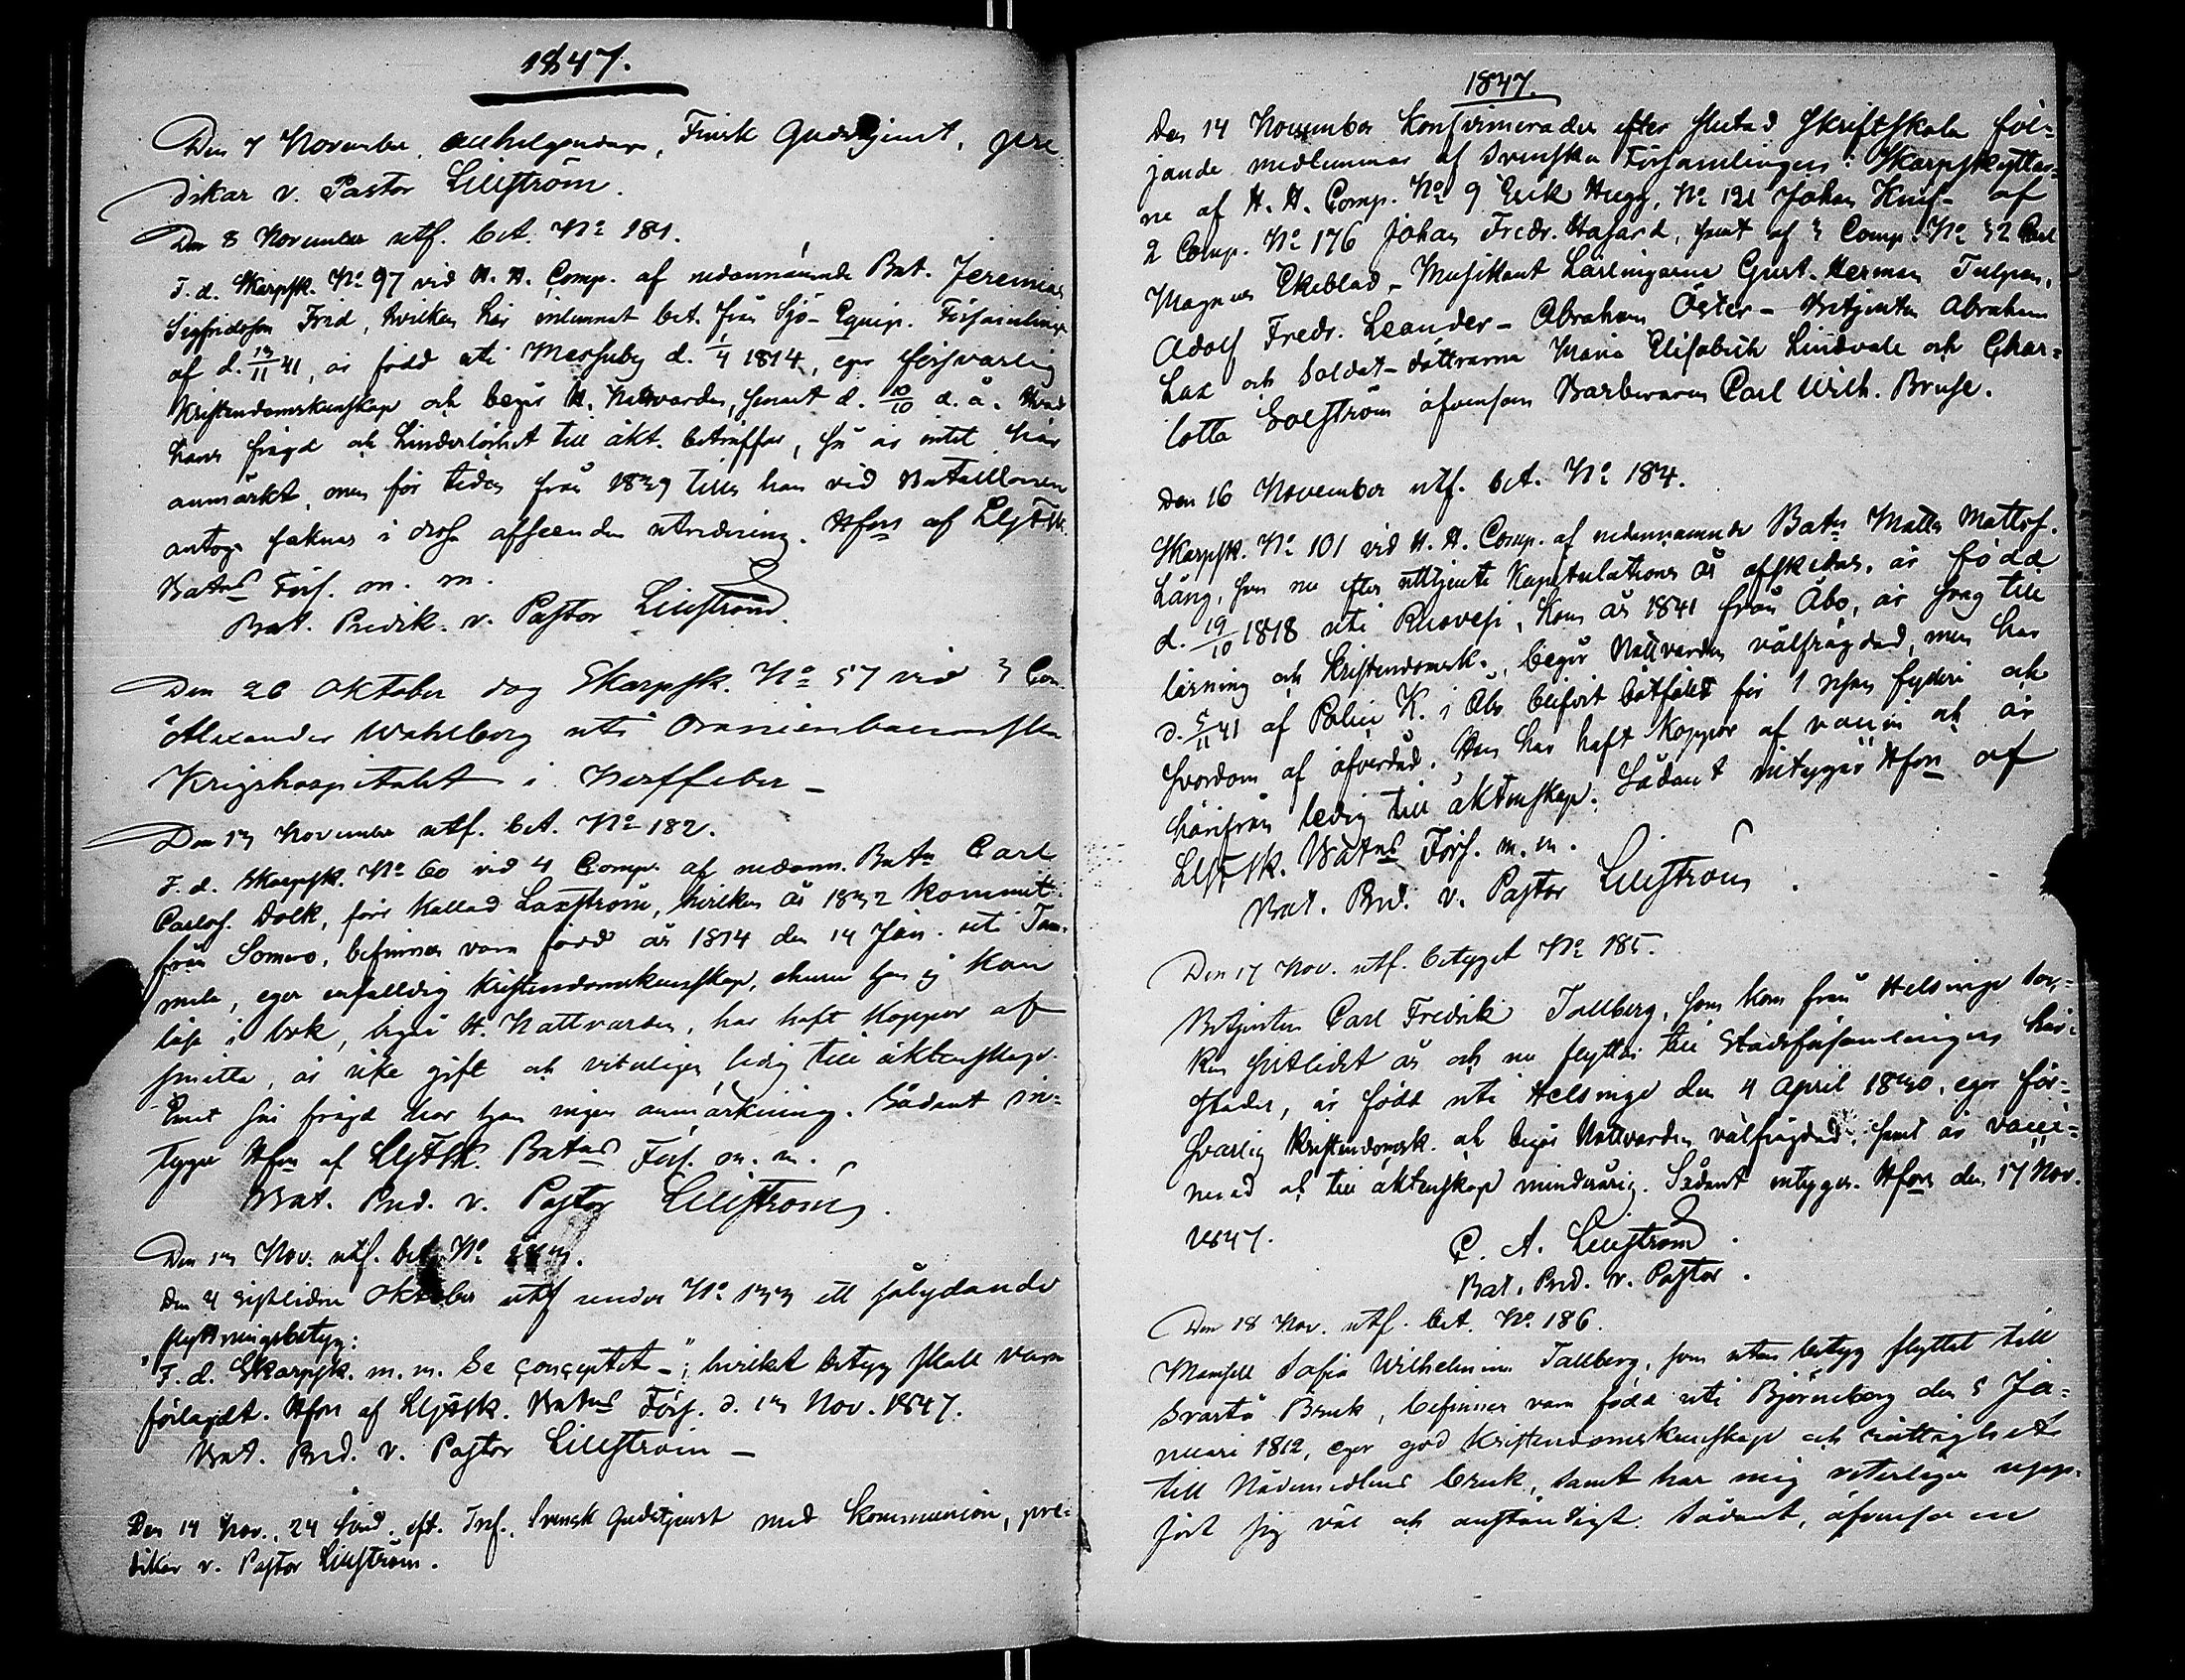 1847.
Den 7 November. Allhelgondag, Finsk Gudstjenst, pre-
dikar v. Pastor Lillström.
Den 8 November utf. bet. No 181.
F. d. Skarpsk. No 97 vid H. H. Comp. af nedannämnde Bat. Jeremias
Sigfridsson Frid, hvilken här inlemnat bet. från Sjö-Equip. Församling
af d. 13/11 41, är född uti Messuby d. 1/4 1814, eger försvarlig
Kristendomskunskap och begår H. Nattvarden, senast d. 10/10 d. å. Hvad
hans frägd och hinderlöshet till äkt. beträffar, så är intet här
anmärkt, men för tiden från 1839 tills han vid Bataillonen
antogs saknas i dessa afseenden utredning. Hfors af LgFSk.
Batns Förs. m. m.
Bat. Predik. v. Pastor Lillström.
Den 26 Oktober dog Skarpsk. No 57 vid 3 Com.
Alexander Wahlberg uti Oranienbaumska
Krigshospitalet i Nerffeber –
Den 13 November utf. bet. No 182.
F. d. Skarpsk. No 60 vid 4 Comp. af nedann. Batn Carl
Carlss. Dolk, förr kallad Laxström, hvilken år 1832 kommit
från Somero, befinnes vara född år 1814 den 14 Jan. uti Tam-
mela, eger enfalldig Kristendomskunskap, ehuru han ej kan
läsa i bok, begår H. Nattvarden, har haft koppor af
smitta, är icke gift och veterligen ledig till äktenskap.
Emot sin frägd har han ingen anmärkning. Sådant in-
tygar Hfors af LgFSk. Batns Förs. m. m.
Bat. Pred. v. Pastor Lillström.
Den 13 Nov. utf. bet. No 183.
Den 4 sistliden Oktober utf under No 133 ett sålydande
flyttningsbetyg:
"F. d. Skarpsk. m. m. Se conceptet –"; hvilket betyg skall vara
förlagdt. Hfors af LgFSk. Batns Förs. d. 13 Nov. 1847.
Bat. Pred. v. Pastor Lillström –
Den 14 Nov., 24 Sönd. eft. Tref. Svensk Gudstjenst med Kommunion, pre-
dikar v. Pastor Lillström.
1847.
Den 14 November konfirmerades efter slutad Skriftskola föl-
jande medlemmar af Svenska Församlingen: Skarpskyttar-
ne af H. H. Comp. No 9 Erik Hugg, No 121 Johan Knif – af
2 Comp. No 176 Johan Fredr. Hasard, samt af 3 Comp. No 32 Carl
Magnus Ekeblad – Musikant Lärlingarne Gust. Herman Tulpan,
Adolf Fredr. Leander – Abraham Öster – Betjenten Abraham
Lax och Soldat-döttrarna Maria Elisabeth Lindvall och Char-
lotta Solström äfvensom Barberaren Carl Wilh. Bruse.
Den 16 November utf. bet. No 184.
Skarpsk. No 101 vid H. H. Comp. af nedannämnde Batn Matts Mattss.
Lång, som nu efter uttjente Kapitulations år afskedas, är född
d. 19/10 1818 uti Ruovesi, kom år 1841 från Åbo, är svag till
läsning och Kristendomsk., begår Nattvarden välfrägdad, men har
d. 5/11 41 af Police K. i Åbo blifvit bötfäld för 1 resan fylleri och
svordom af öfverdåd. Han har haft koppor af vaccin och är
härifrån ledig till äktenskap. Sådant intygar Hfors af
LgFSk. Batns Förs. m. m.
Bat. Pred. v. Pastor Lillström.
Den 17 Nov. utf. betyget No 185.
Betjenten Carl Fredrik Tallberg, som kom från Helsinge soc-
ken sistlidet år och nu flyttar till Stadsförsamlingen här i
staden, är född uti Helsinge den 4 April 1830, eger för-
svarlig Kristendomsk. och begår Nattvarden välfrägdad, samt är vacci-
nerad och till äktenskap minderårig. Sådant intygas. Hfors den 17 Nov.
1847.
C. A. Lillström.
Bat. Pred. v. Pastor.
Den 18 Nov. utf. bet. No 186.
Mamsell Sofia Wilhelmina Tallberg, som utan betyg flyttat till
Svartå Bruk, befinnes vara född uti Björneborg den 5 Ja-
nuari 1812, eger god Kristendomskunskap och rättighet
till Nådemedlens bruk, samt har mig veterligen upp-
fört sig väl och anständigt. Sådant, äfvensom en